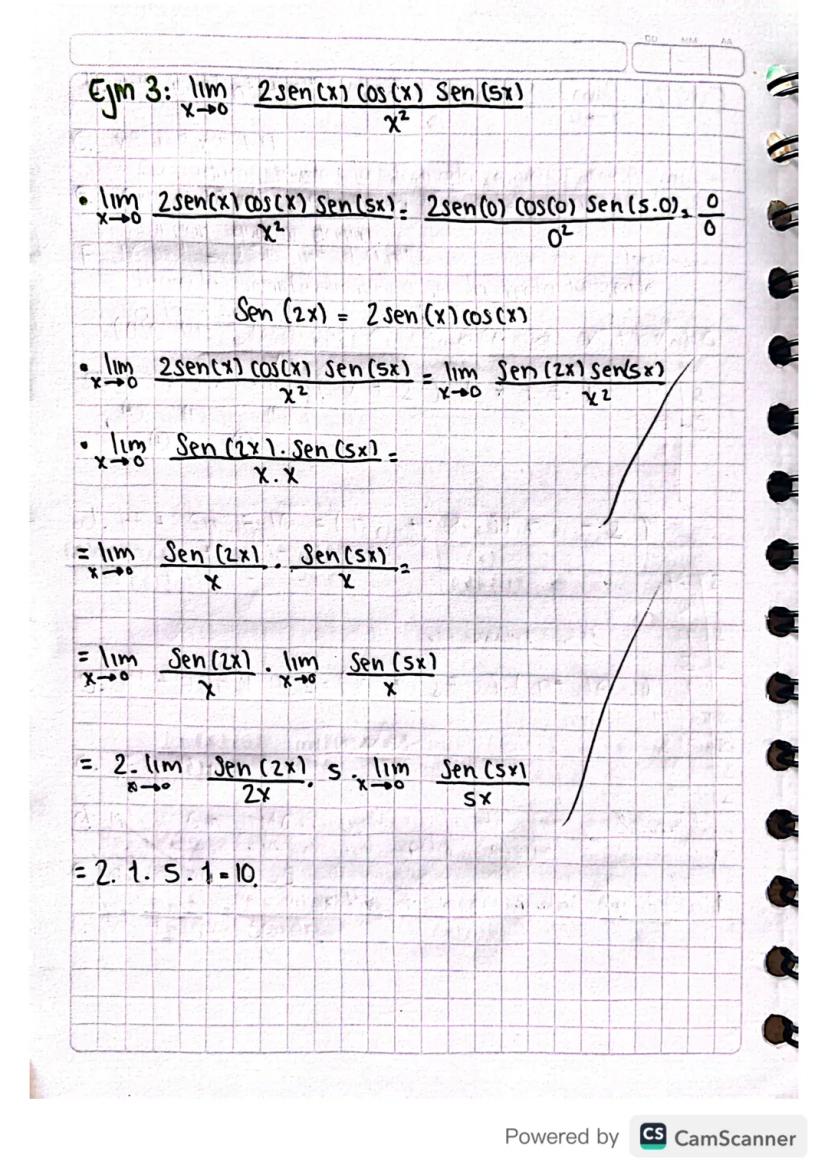 DD MM AA
Ejm 3: lim x→0 2sen(x) cos(x) Sen(5x) / x²
• lim x→0 2sen(x) cos(x) Sen(5x) / x² = 2sen(0) cos(0) Sen(5.0) / 0² = 0/0
Sen (2x) = 2sen(x)cos(x)
• lim x→0 2sen(x) cos(x) Sen(5x) / x² = lim x→0 Sen(2x) sen(5x) / x²
• lim x→0 Sen(2x) . Sen(5x) / x . x =
= lim x→0 Sen(2x) / x . Sen(5x) / x =
= lim x→0 Sen(2x) / x . lim x→0 Sen(5x) / x
= 2. lim x→0 Sen(2x) / 2x . 5 . lim x→0 Sen(5x) / 5x
= 2. 1. 5. 1 = 10.
Powered by CS CamScanner